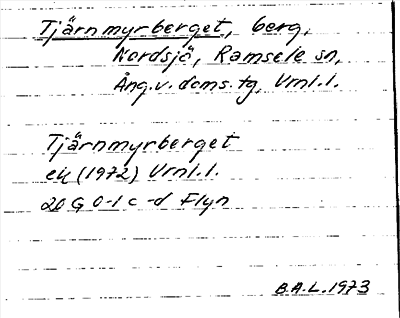 Tjärnmyrberget, berg,
Nordsjö, Ramsele sn,
Ång.v.doms.tg, Vrnl.l.
Tjärnmyrberget
ek (1972) Vrnl.l.
20 G 0-1 c-d Flyn
B.A.L. 1973